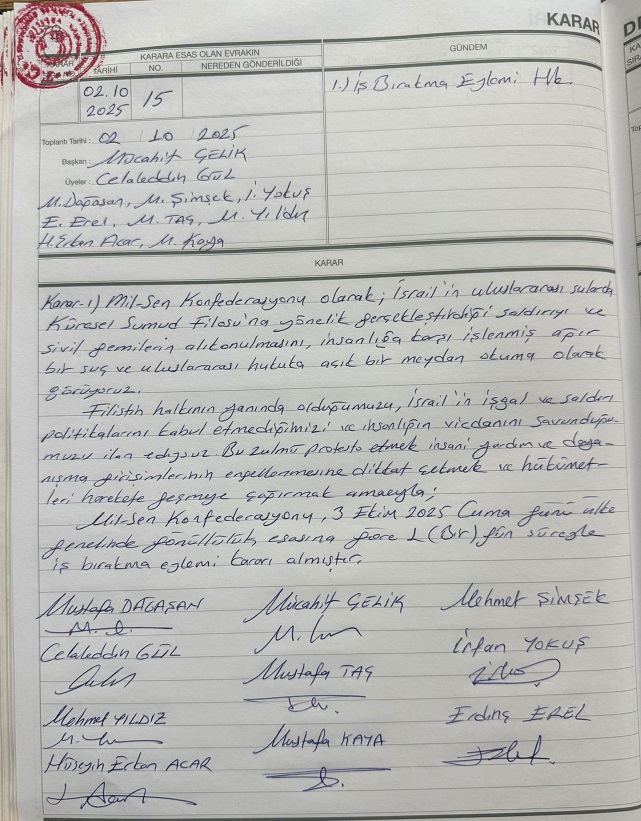 KARAR
KARARA ESAS OLAN EVRAKIN
GÜNDEM
TARİHİ NO. NEREDEN GÖNDERİLDİĞİ
02.10
2025 15
1.) İş Bırakma Eylemi Hk.
Toplantı Tarihi : 02 10 2025
Başkan : Mücahit ÇELİK
Üyeler : Celaleddin GÜL
M. Dağaşan, M. Şimşek, İ. Yokuş
E. Erel, M. TAŞ, M. Yıldız
H. Erkan Acar, M. Kaya
KARAR
Karar-1) Mil-Sen Konfederasyonu olarak; İsrail'in uluslararası sularda
Küresel Sumud Filosu'na yönelik gerçekleştirdiği saldırıyı ve
sivil gemilerin alıkonulmasını, insanlığa karşı işlenmiş ağır
bir suç ve uluslararası hukuka açık bir meydan okuma olarak
görüyoruz.
Filistin halkının yanında olduğumuzu, İsrail'in işgal ve saldırı
politikalarını kabul etmediğimizi ve insanlığın vicdanını savunduğu-
muzu ilan ediyoruz. Bu zulmü protesto etmek insani yardım ve daya-
nışma girişimlerinin engellenmesine dikkat çekmek ve hükümet-
leri harekete geçmeye çağırmak amacıyla;
Mil-Sen Konfederasyonu, 3 Ekim 2025 Cuma günü ülke
genelinde gönüllülük esasına göre 1 (Bir) gün süreyle
iş bırakma eylemi kararı almıştır.
Mustafa DAĞAŞAN Mücahit ÇELİK Mehmet ŞİMŞEK
Celaleddin GÜL Mustafa TAŞ İrfan YOKUŞ
Mehmet YILDIZ Mustafa KAYA Erdinç EREL
Hüseyin Erkan ACAR